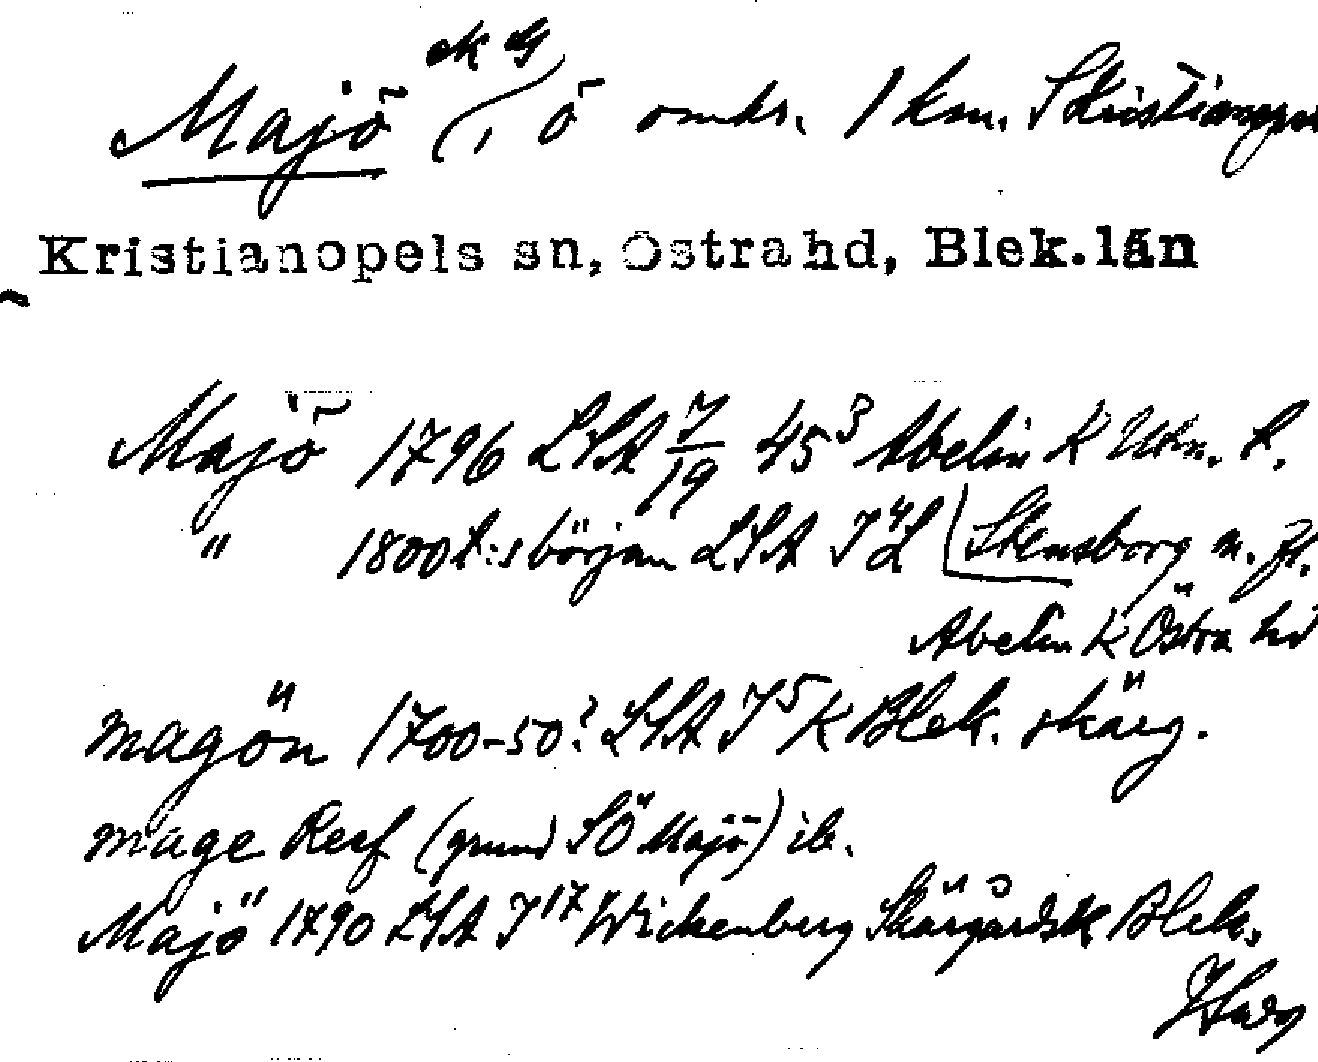 Majö ek G, ö omkr. 1 km. S Kristianopel
Kristianopels sn, Östra hd, Blek. län
Majö 1796 LSA 7/19 45³ Abelin K Utkn. L.
" 1800 t:s början LSA I⁴L Stensborg m. fl.
Abelin K Östra hd
magön 1700-50? LSA I⁵ K Blek. skärg.
mage Reef (grund SÖ Majö) ib.
Majö 1790 LSA I¹⁷ Wickenberg Skärgårdsk Blek.